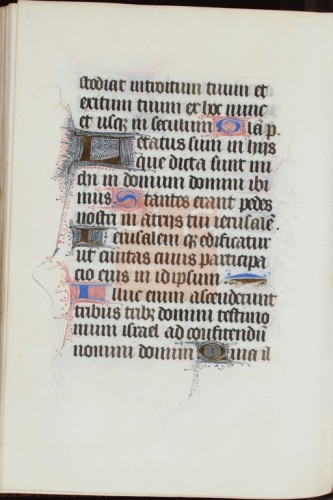 stodiat introitum tuum et
exitum tuum ex hoc nunc
et usq; in seculum Gl̄a p.
Letatus sum in hijs
que dicta sunt mi
chi in domum domini ibi
mus Stantes erant pedes
nostri in atrijs tui ierusalē
Ierusalem q̄ edificatur
ut ciuitas cuius participa
cio eius in idipsum
Illuc enim ascenderunt
tribus trib; domini testimo
nium israel ad confitendū
nomini domini Quia il